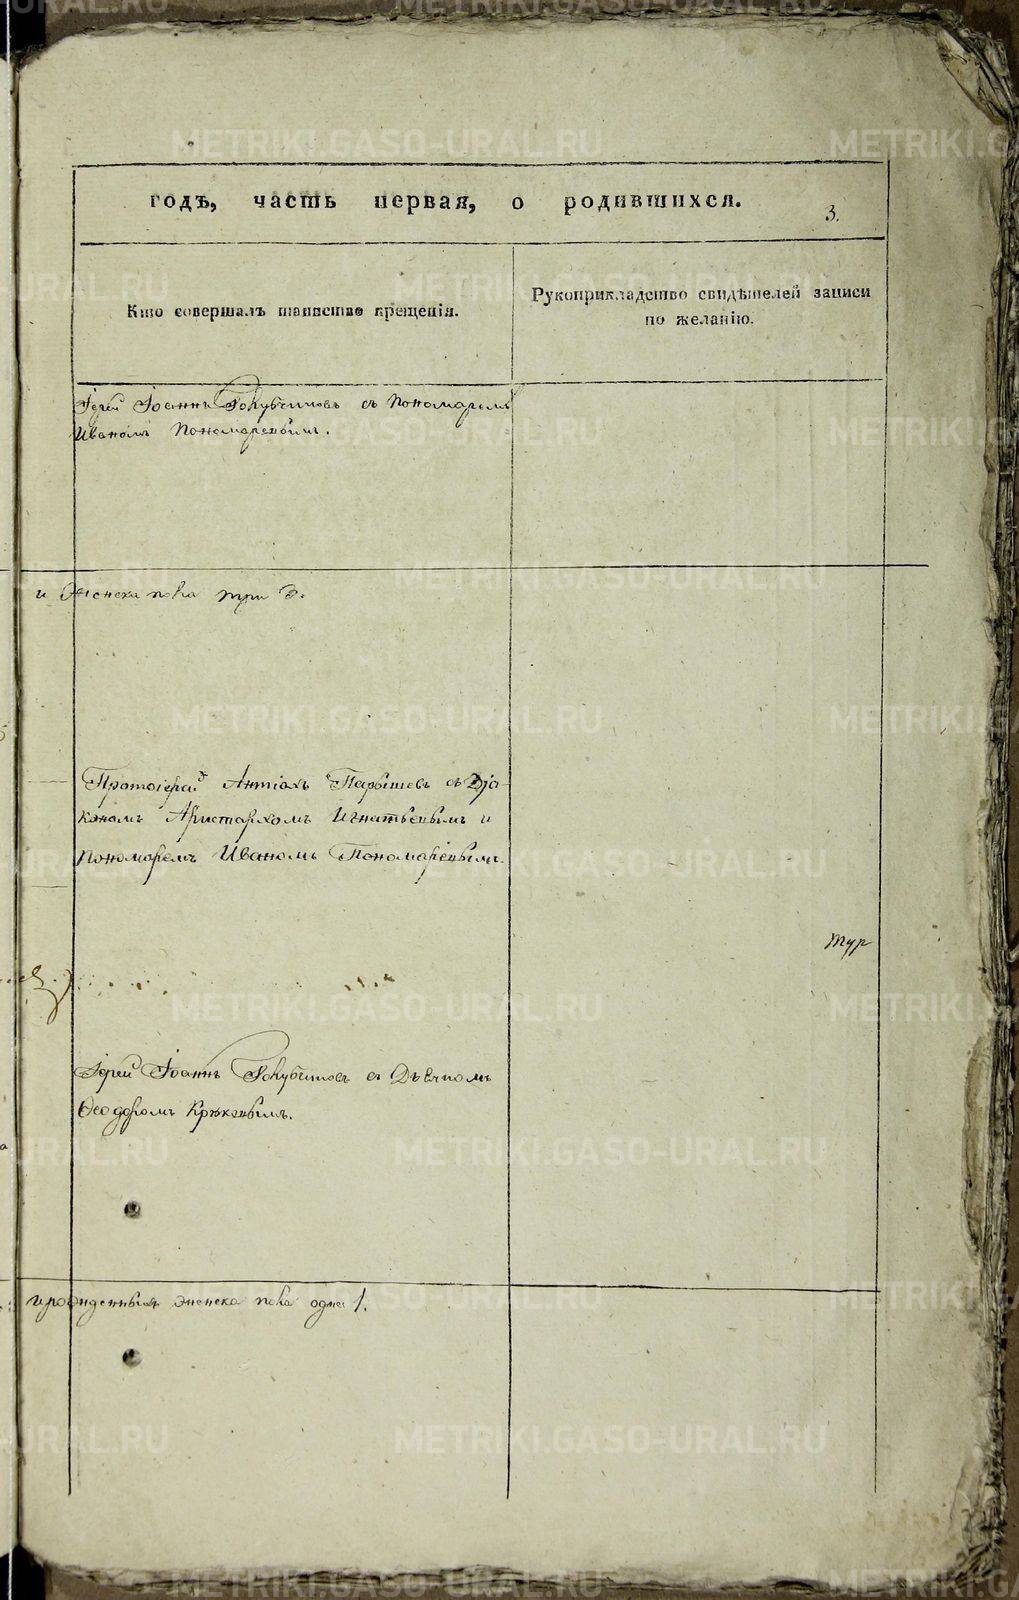 годъ, часть первая, о родившихся.
3.
Кто совершалъ таинство крещенія.
Рукоприкладство свидѣтелей записи
по желанію.
Іерей Іоаннъ Голубчиковъ съ Пономаремъ
Иваномъ Пономаревымъ.
и Женска пола три 3.
Протоіерей Антіохъ съ Діа-
кономъ Аристархомъ Игнатьевымъ и
Пономаремъ Иваномъ Пономаревымъ.
тур
Іерей Іоаннъ Голубчиковъ съ Дьячкомъ
Ѳеодоромъ
женска пола одна 1.
METRIKI.GASO-URAL.RU